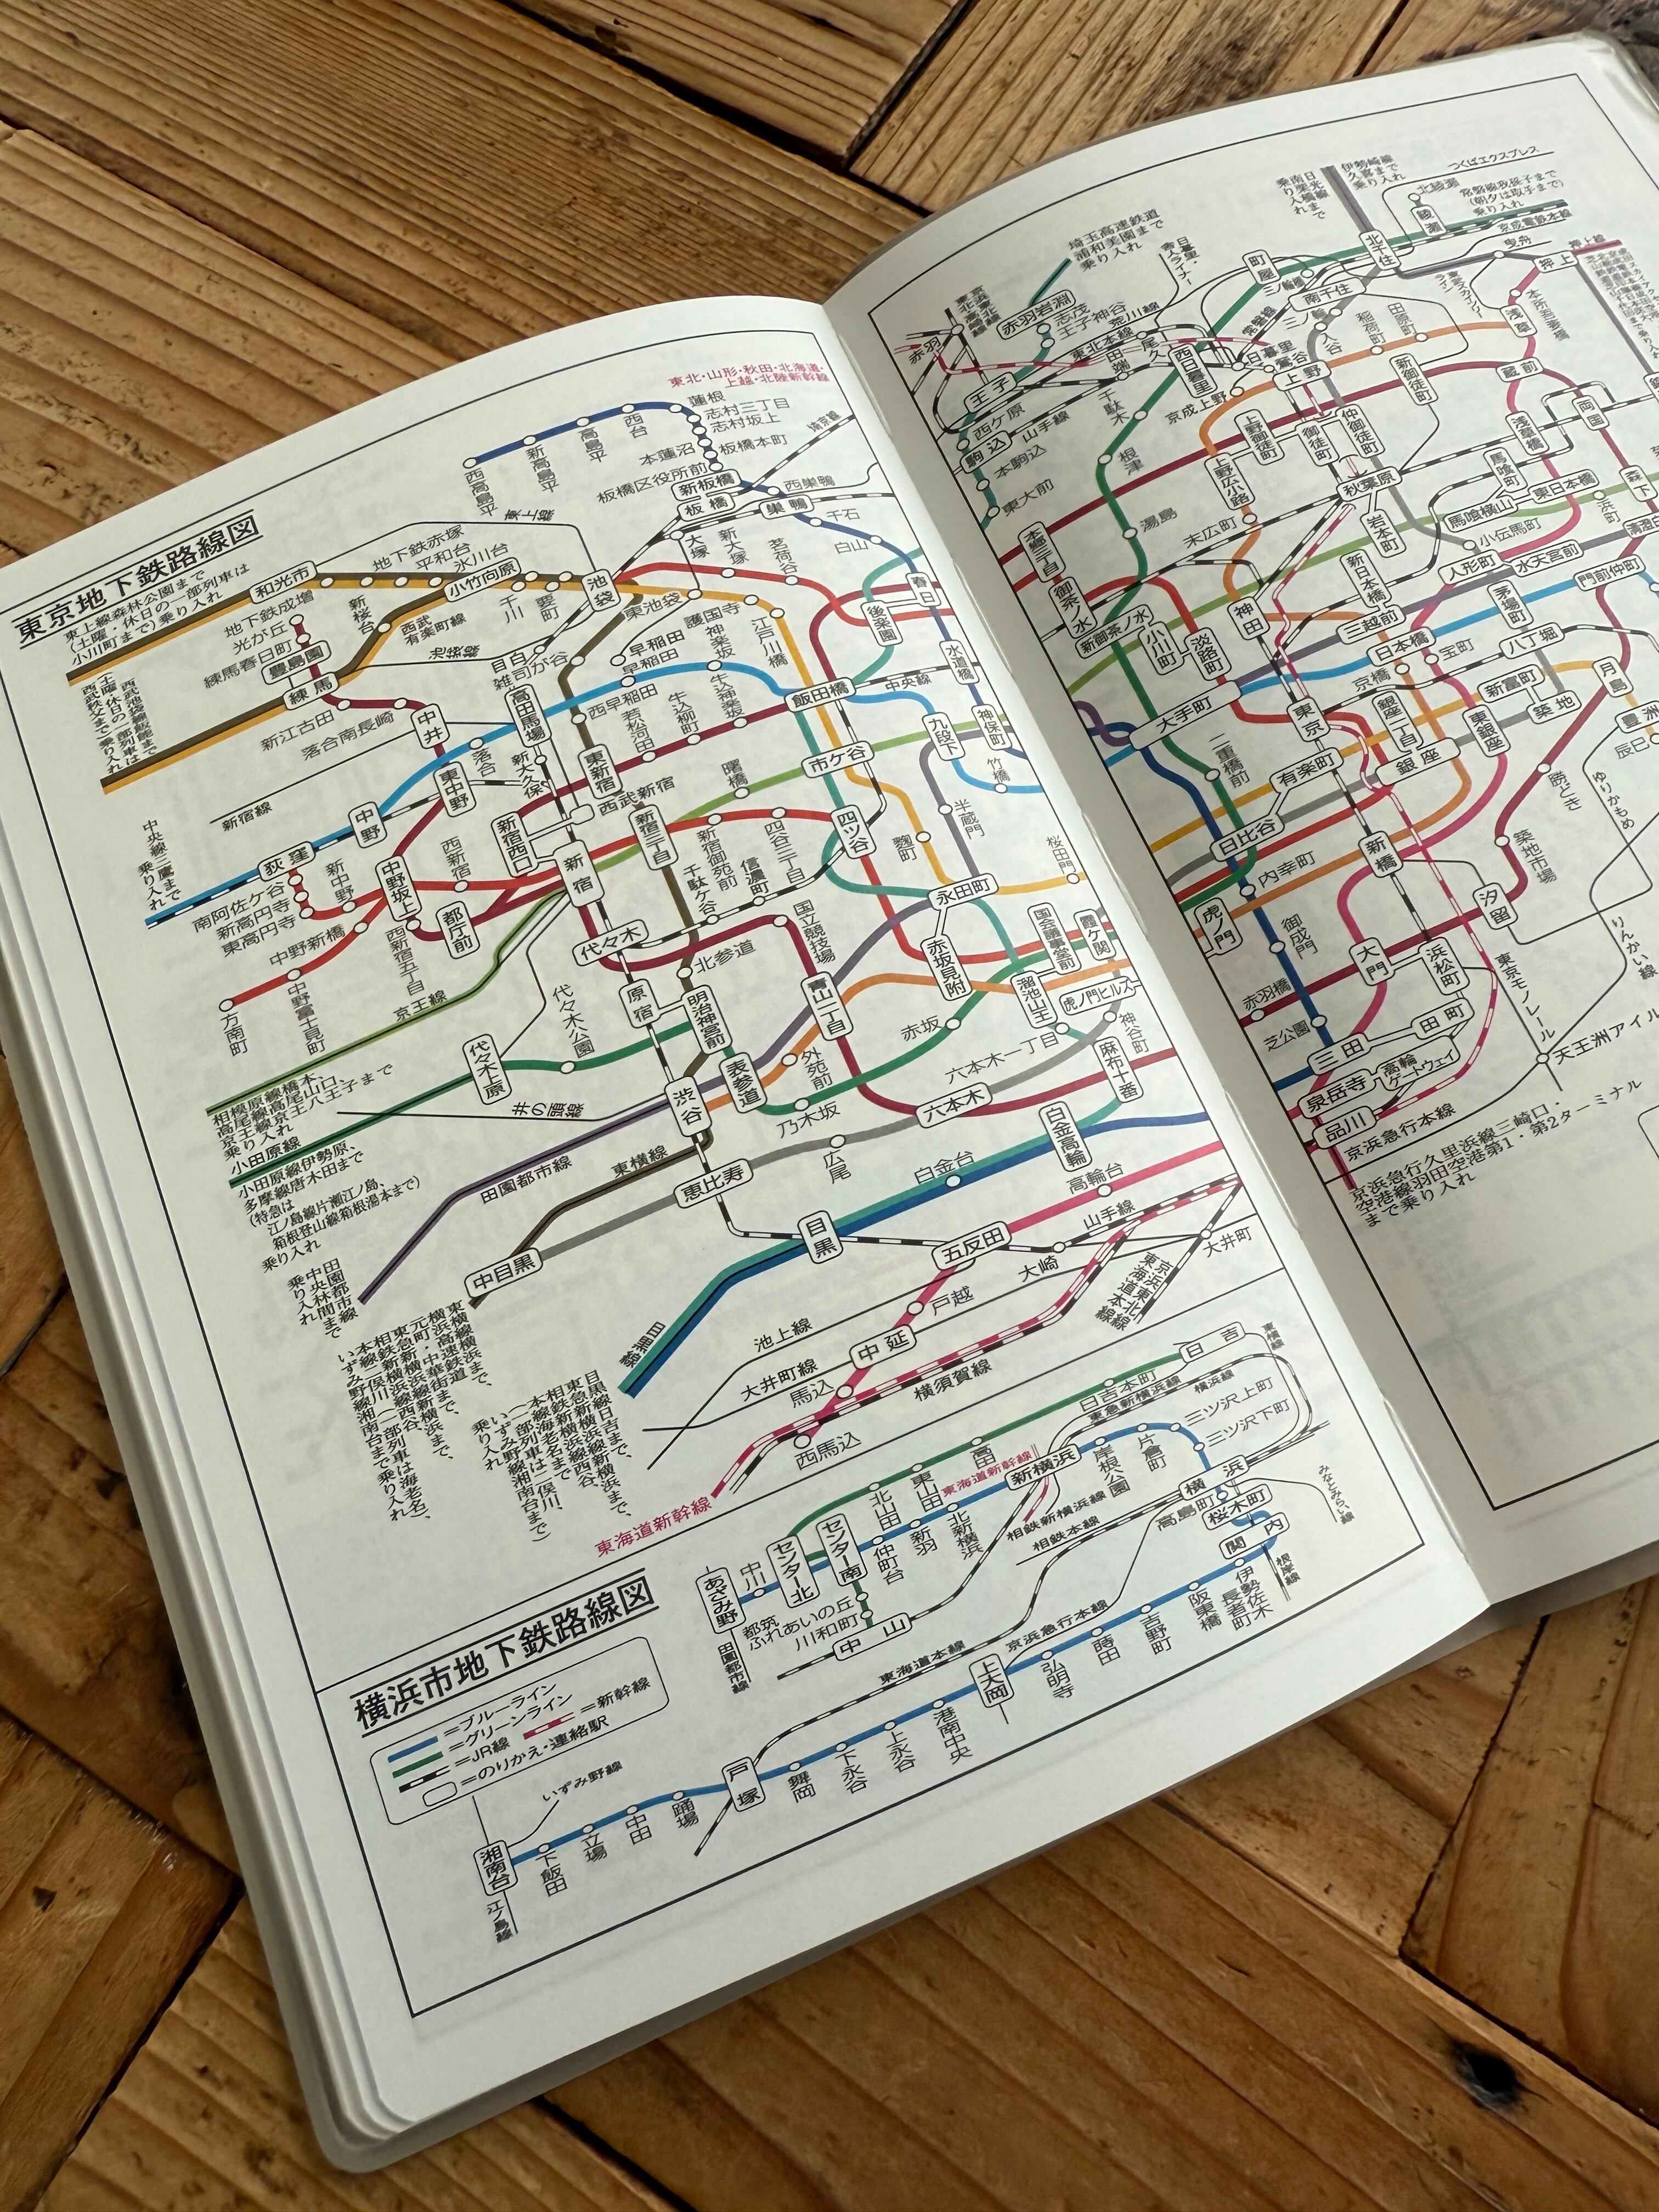 東京地下鉄路線図
東上線森林公園まで
(土曜・休日の一部列車は
小川町まで)乗り入れ
東北・山形・秋田・北海道・
上越・北陸新幹線
西高島平
新高島平
高島平
西台
蓮根
志村三丁目
志村坂上
本蓮沼
板橋本町
板橋区役所前
新板橋
板橋
西巣鴨
巣鴨
千石
白山
埼京線
東上線
和光市
地下鉄成増
地下鉄赤塚
平和台
氷川台
小竹向原
千川
要町
池袋
大塚
新大塚
茗荷谷
後楽園
春日
新桜台
西武
有楽町線
池袋線
光が丘
練馬春日町
豊島園
練馬
新江古田
落合南長崎
中井
東池袋
護国寺
江戸川橋
目白
雑司が谷
早稲田
早稲田
神楽坂
飯田橋
水道橋
中央線
高田馬場
西早稲田
若松河田
牛込柳町
牛込神楽坂
九段下
神保町
竹橋
落合
東中野
中野
新大久保
東新宿
西武新宿
曙橋
市ケ谷
半蔵門
麹町
新宿線
中央線三鷹まで
乗り入れ
荻窪
南阿佐ケ谷
新高円寺
東高円寺
新中野
中野坂上
西新宿
新宿西口
新宿
新宿三丁目
新宿御苑前
四谷三丁目
四ツ谷
千駄ケ谷
信濃町
永田町
桜田門
都庁前
西新宿五丁目
中野新橋
中野富士見町
方南町
京王線
代々木
北参道
国立競技場
赤坂見附
国会議事堂前
霞ケ関
溜池山王
虎ノ門ヒルズ
代々木公園
代々木上原
原宿
明治神宮前
青山一丁目
赤坂
六本木一丁目
神谷町
麻布十番
表参道
外苑前
乃木坂
六本木
渋谷
井の頭線
相模原線橋本、
高尾線高尾山口、
京王線京王八王子まで
乗り入れ
小田原線
小田原線伊勢原、
多摩線唐木田まで
(特急は
江ノ島線片瀬江ノ島、
箱根登山線箱根湯本まで)
乗り入れ
田園都市線
東横線
広尾
恵比寿
中目黒
白金台
白金高輪
高輪台
目黒
五反田
山手線
大崎
大井町
京浜東北線
東海道本線
田園都市線
中央林間まで
乗り入れ
目黒線
戸越
池上線
中延
大井町線
馬込
横須賀線
西馬込
東海道新幹線
横浜市地下鉄路線図
=ブルーライン
=グリーンライン
=JR線
=新幹線
=のりかえ・連絡駅
日吉
日吉本町
東急新横浜線
横浜線
東横線
高田
東山田
北山田
東海道新幹線
新横浜
岸根公園
片倉町
三ツ沢上町
三ツ沢下町
横浜
高島町
桜木町
関内
みなとみらい線
根岸線
伊勢佐木
長者町
阪東橋
吉野町
蒔田
弘明寺
上大岡
港南中央
上永谷
下永谷
舞岡
戸塚
踊場
中田
立場
下飯田
湘南台
いずみ野線
江ノ島線
あざみ野
田園都市線
中川
センター北
センター南
仲町台
新羽
北新横浜
都筑
ふれあいの丘
川和町
中山
相鉄新横浜線
相鉄本線
京浜急行本線
東海道本線
埼玉高速鉄道
浦和美園まで
乗り入れ
伊勢崎線
久喜まで
乗り入れ
つくばエクスプレス
北綾瀬
綾瀬
常磐線我孫子まで
(朝夕は取手まで)
乗り入れ
京成電鉄本線
北千住
曳舟
押上線
押上
町屋
三ノ輪橋
南千住
三ノ輪
入谷
稲荷町
田原町
浅草
本所吾妻橋
赤羽
赤羽岩淵
志茂
王子神谷
荒川線
東北本線
尾久
田端
王子
西ケ原
駒込
山手線
本駒込
東大前
千駄木
西日暮里
日暮里
鶯谷
上野
京成上野
根津
湯島
上野御徒町
御徒町
仲御徒町
新御徒町
蔵前
両国
浅草橋
上野広小路
末広町
秋葉原
岩本町
馬喰町
馬喰横山
東日本橋
浜町
森下
小伝馬町
人形町
水天宮前
門前仲町
本郷三丁目
御茶ノ水
新御茶ノ水
小川町
淡路町
神田
新日本橋
三越前
日本橋
茅場町
八丁堀
宝町
京橋
新富町
築地
月島
豊洲
辰巳
大手町
東京
二重橋前
有楽町
銀座一丁目
銀座
東銀座
日比谷
内幸町
新橋
虎ノ門
御成門
勝どき
築地市場
ゆりかもめ
汐留
大門
浜松町
赤羽橋
芝公園
三田
田町
東京モノレール
りんかい線
天王洲アイル
泉岳寺
高輪
ゲートウェイ
品川
京浜急行本線
京浜急行久里浜線三崎口・
空港線羽田空港第1・第2ターミナル
まで乗り入れ